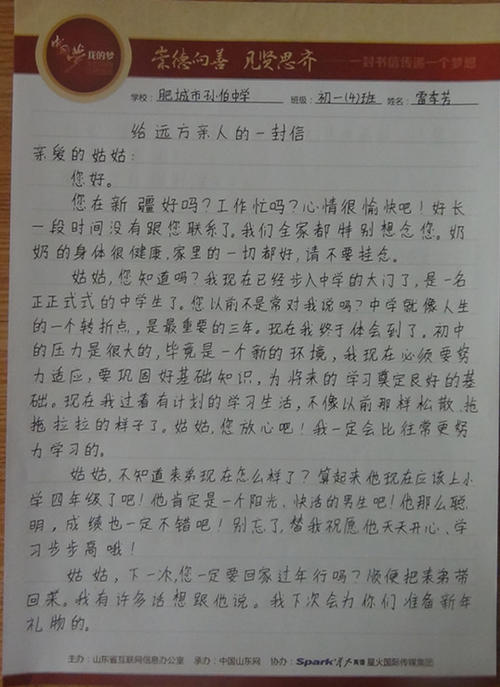 中国梦 我的梦
崇德向善 见贤思齐
一封书信传递一个梦想
学校：肥城市孙伯中学 班级：初一(4)班 姓名：雷李芳
给远方亲人的一封信
亲爱的姑姑：
您好。
您在新疆好吗？工作忙吗？心情很愉快吧！好长
一段时间没有跟您联系了。我们全家都特别想念您。奶
奶的身体很健康，家里的一切都好，请不要挂念。
姑姑，您知道吗？我现在已经步入中学的大门了，是一名
正正式式的中学生了。您以前不是常对我说吗？中学就像人生
的一个转折点，是最重要的三年。现在我终于体会到了。初中
的压力是很大的，毕竟是一个新的环境，我现在必须要努
力适应，要巩固好基础知识，为将来的学习奠定良好的基
础。现在我过着有计划的学习生活，不像以前那样松散、拖
拖拉拉的样子了。姑姑，您放心吧！我一定会比往常更努
力学习的。
姑姑，不知道表弟现在怎么样了？算起来他现在应该上小
学四年级了吧！他肯定是一个阳光、快活的男生吧！他那么聪
明，成绩也一定不错吧！别忘了，替我祝愿他天天开心、学
习步步高哦！
姑姑，下一次，您一定要回家过年行吗？顺便把表弟带
回来。我有许多话想跟他说。我下次会为你们准备新年
礼物的。
主办：山东省互联网信息办公室 承办：中国山东网 协办：Spark星火英语 星火国际传媒集团